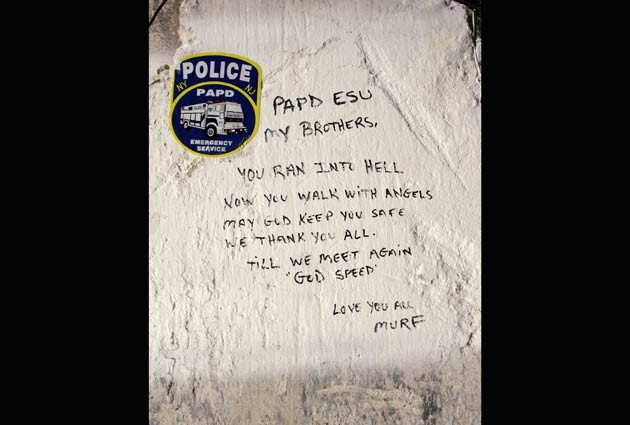 POLICE
NY NJ
PAPD
EMERGENCY
SERVICE
PAPD ESU
MY BROTHERS,
YOU RAN INTO HELL
NOW YOU WALK WITH ANGELS
MAY GOD KEEP YOU SAFE
WE THANK YOU ALL.
TILL WE MEET AGAIN
"GOD SPEED"
LOVE YOU ALL
MURF